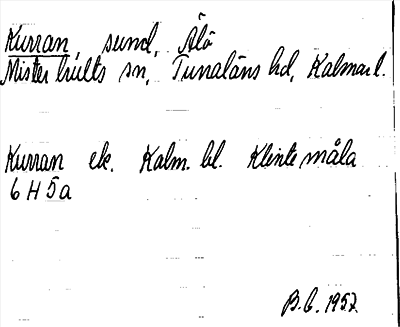 Kurran, sund, Älö
Misterhults sn, Tunaläns hd, Kalmar l.
Kurran ek. Kalm. bl. Klintemåla
6 H 5a
B.G. 1957